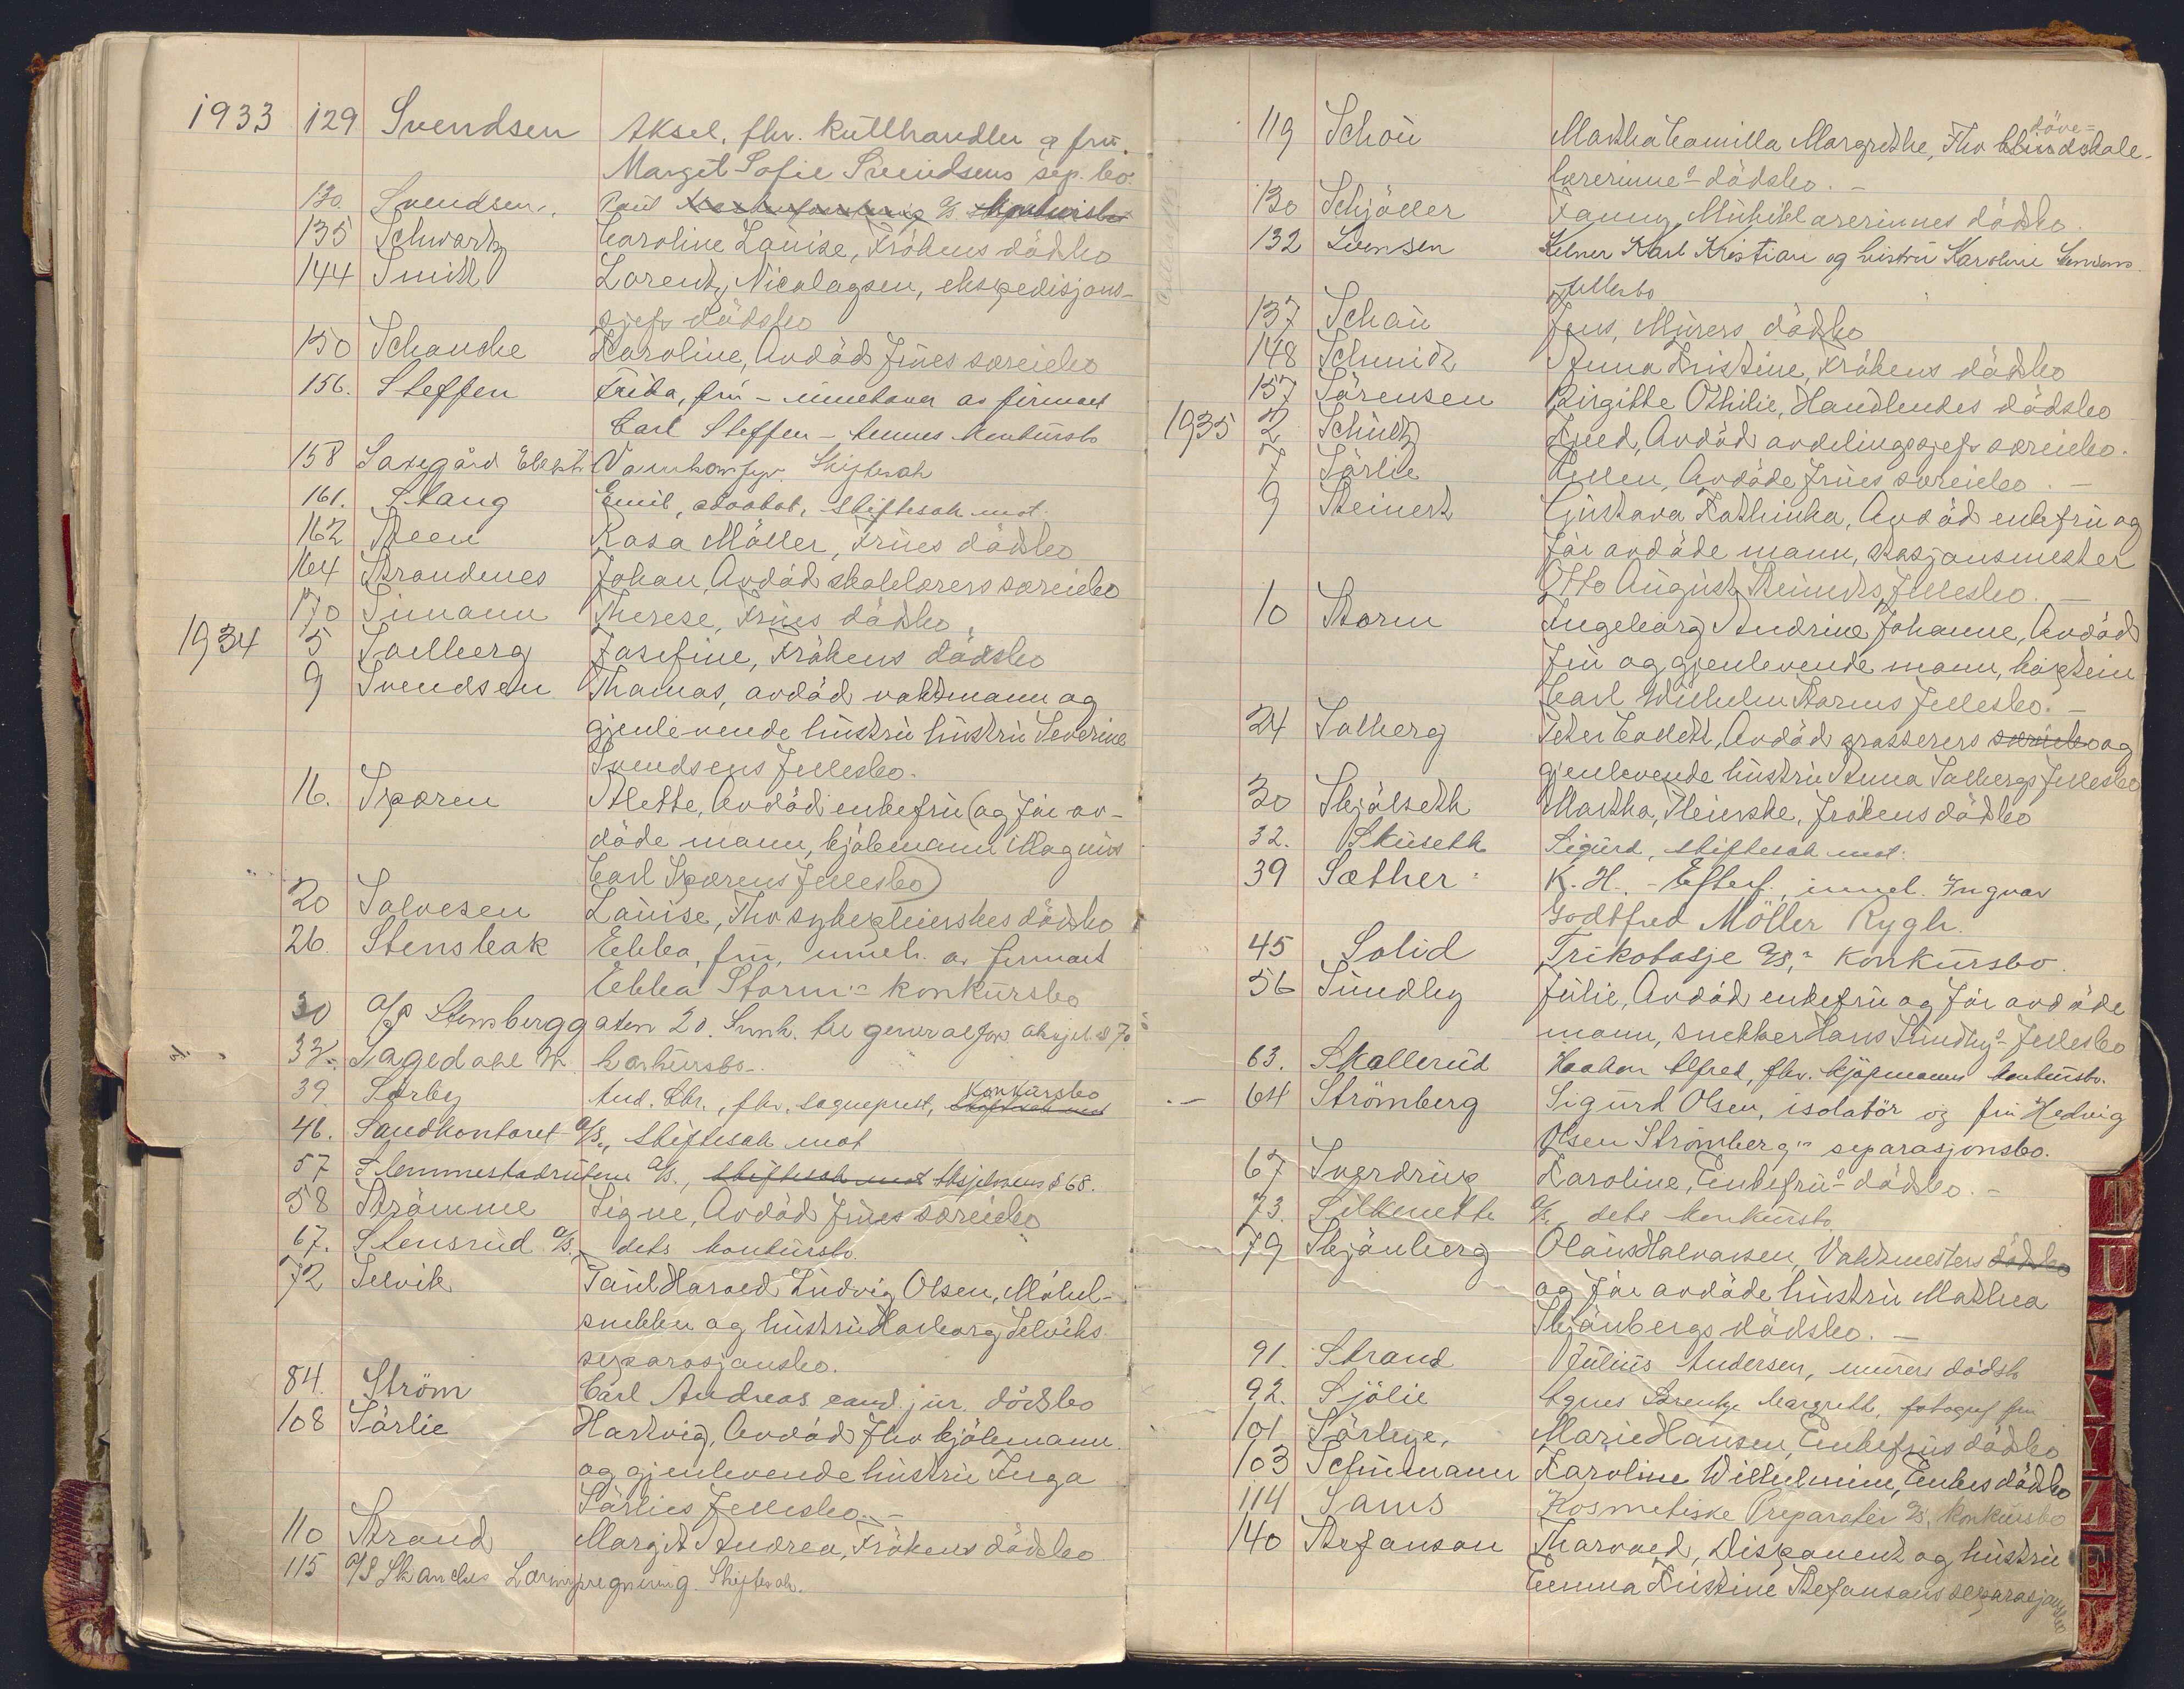 1933 129 Svendsen Aksel, fhv. kullhandler og fru
Margit Sofie Svendsens sep. bo.
130. Svendsen, Paul A/S
135 Schwartz Caroline Louise, Frökens dödsbo
144 Smith Lorentz Nicolaysen, ekspedisjons-
sjefs dödsbo
150 Schanche Karoline, Avdöd frues særeiebo
156. Steffen Frida, fru - innehaver av firmaet
Carl Steffen -, hennes konkursbo
158 Saxegård Elektr. Skiftesak
161. Stang Emil, advokat, skiftesak mot.
162 Steen Rosa Möller, Frues dödsbo
164 Strandenes Johan, Avdöd skolelærers særeiebo
170 Simann Therese, Frues dödsbo
1934 5 Solberg Josefine, Frökens dödsbo
9 Svendsen Thomas, avdöd vaktmann og
gjenlevende hustru hustru Severine
Svendsens fellesbo.
16. Sparen Alette, Avdöd enkefru (og för av-
döde mann, kjöbmann Magnus
Carl Sparens fellesbo)
20 Salvesen Louise, Fhv sykepleierskes dödsbo
26. Stensbak Ebba, fru, inneh. av firmaet
Ebba Storm's konkursbo
30 A/S Stensberggaten 20. Innk. til generalfors. aksjel. § 70
33. Sagedahl konkursbo.
39. Sörby And. Chr., fhv. sogneprest, konkursbo
46. Sandkontoret A/S., skiftesak mot
57 Slemmestadruten A/S., skiftesak mot Aksjelovens § 68.
58 Strömme Signe, Avdöd frues særeiebo
67. Stensrud A/S. dets konkursbo.
72 Selvik Paul Harald Ludvig Olsen, Möbel-
snekker og hustru Valborg Selviks
separasjonsbo.
84. Ström Carl Andreas cand. jur. dödsbo
108 Sörlie Hartvig, Avdöd fhv kjöbmann
og gjenlevende hustru Inga
Sörlies fellesbo. -
110 Strand Margit Andrea, Frökens dödsbo
115 A/S Skandis Skiftesak.
119 Schou Martha Camilla Margrethe, Fhv blindskole- döve=
lærerinne's dödsbo. -
130 Schjöller Fanny, Musikklærerinnes dödsbo.
132 Svensen Kelner Karl Kristian og hustru Karoline Svensens
fellesbo
137 Schau Jens, Murers dödsbo
148 Schmidt Anna Kristine, Frökens dödsbo
157 Sörensen Birgitte Othilie, Handlendes dödsbo
1935 2 Schultz Avdöd avdelingssjefs særeiebo.
7 Sörlie Ellen, Avdöde frues særeiebo. -
9 Steinert Gustava Kathinka, Avdöd enkefru og
för avdöde mann, stasjonsmester
Otto August Steinerts fellesbo. -
10 Storm Ingeborg Andrine Johanne, Avdöd
fru og gjenlevende mann, kaptein
Carl Wilhelm Storms fellesbo. -
24 Solberg Peter Collett, Avdöd grosserers særeiebo og
gjenlevende hustru Anna Solbergs fellesbo
30 Skjölseth Martha, Pleierske, frökens dödsbo
32. Skuseth Sigurd, skiftesak mot.
39 Sæther: K. H. - Efterf., inneh. Ingvar
Godtfred Möller Rygh.
45 Solid Trikotasje A/S,- konkursbo.
56 Sundby Julie, Avdöd enkefru og för avdöde
mann, snekker Hans Sundby's fellesbo
63. Skallerud Haakon Alfred, fhv. kjöpmanns konkursbo.
64 Strömberg Sigurd Olsen, isolatör og fru Hedvig
Olsen Strömberg's separasjonsbo.
67 Sverdrup Karoline, Enkefru's dödsbo. -
73. Silkenette A/S, dets konkursbo.
79 Skjönberg Olaus Halvorsen, Vaktmesters dödsbo
og för avdöde hustru Mathea
Skjönbergs dödsbo. -
91. Strand Julius Andersen, murers dödsbo
92. Sjölie Agnes Lorentze Margrethe, fotograf fru
101 Sörbye, Marie Hansen, Enkefrus dödsbo
103 Schumann Karoline Wilhelmine, Enkes dödsbo
114 Sams Kosmetiske Preparater A/S, konkursbo
140 Stefanson Thorvald, Disponent og hustru
Emma Kristine Stefansons separasjonsbo
T
U
V
Y
Z
Ø